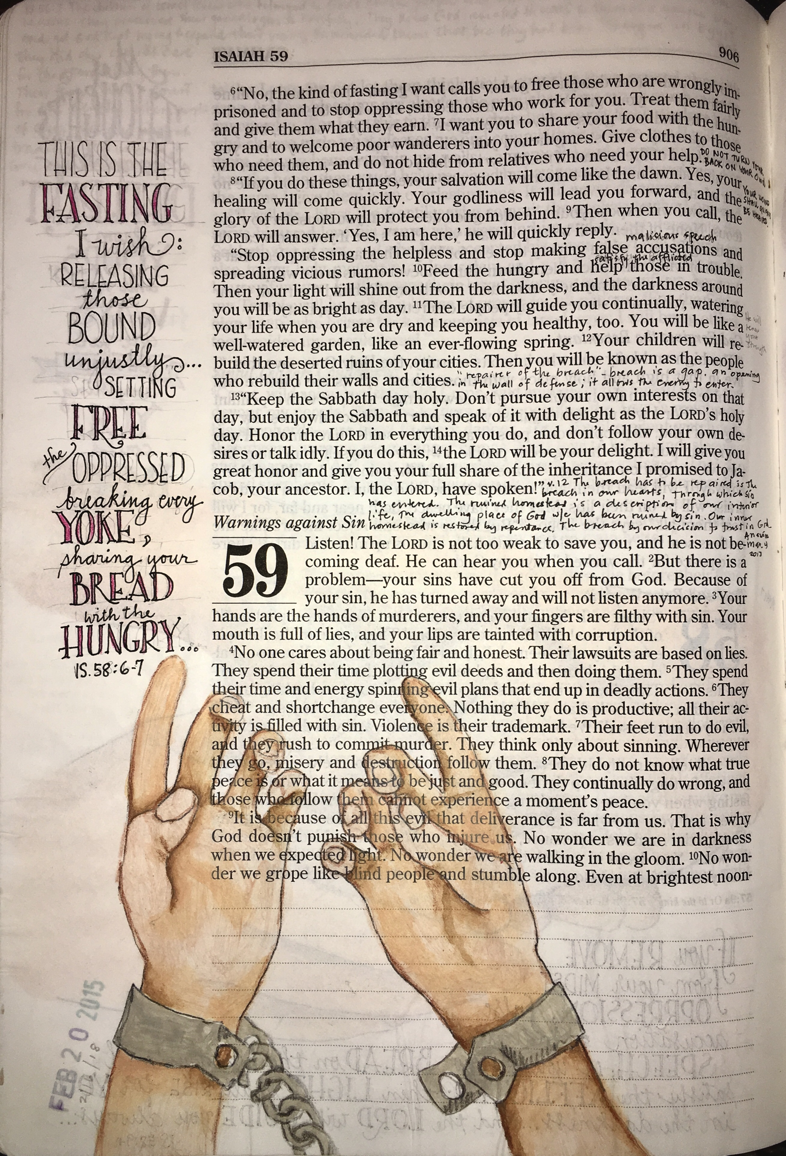 ISAIAH 59
906
THIS IS THE
FASTING
I wish:
RELEASING
those
BOUND
unjustly...
SETTING
FREE
the OPPRESSED
breaking every
YOKE,
sharing your
BREAD
with the
HUNGRY...
IS. 58:6-7
6“No, the kind of fasting I want calls you to free those who are wrongly im-
prisoned and to stop oppressing those who work for you. Treat them fairly
and give them what they earn. 7I want you to share your food with the hun-
gry and to welcome poor wanderers into your homes. Give clothes to those
who need them, and do not hide from relatives who need your help.
DO NOT TURN YOUR
BACK ON YOUR
8“If you do these things, your salvation will come like the dawn. Yes, your
healing will come quickly. Your godliness will lead you forward, and the
glory of the LORD will protect you from behind. 9Then when you call, the
LORD will answer. ‘Yes, I am here,’ he will quickly reply.
malicious speech
“Stop oppressing the helpless and stop making false accusations and
satisfy the afflicted
spreading vicious rumors! 10Feed the hungry and help those in trouble.
Then your light will shine out from the darkness, and the darkness around
you will be as bright as day. 11The LORD will guide you continually, watering
your life when you are dry and keeping you healthy, too. You will be like a
well-watered garden, like an ever-flowing spring. 12Your children will re-
build the deserted ruins of your cities. Then you will be known as the people
who rebuild their walls and cities.
"repairer of the breach" - breach is a gap, an opening
in the wall of defense; it allows the enemy to enter.
13“Keep the Sabbath day holy. Don’t pursue your own interests on that
day, but enjoy the Sabbath and speak of it with delight as the LORD’s holy
day. Honor the LORD in everything you do, and don’t follow your own de-
sires or talk idly. If you do this, 14the LORD will be your delight. I will give you
great honor and give you your full share of the inheritance I promised to Ja-
cob, your ancestor. I, the LORD, have spoken!”
v. 12 The breach has to be repaired is the
breach in our hearts, through which sin
has entered. The ruined homestead is a description of our interior
life, the dwelling place of God. We has been ruined by sin. Our inner
homestead is restored by repentance. The breach by our decision to trust in God.
Warnings against Sin
59
Listen! The LORD is not too weak to save you, and he is not be-
coming deaf. He can hear you when you call. 2But there is a
problem—your sins have cut you off from God. Because of
your sin, he has turned away and will not listen anymore. 3Your
hands are the hands of murderers, and your fingers are filthy with sin. Your
mouth is full of lies, and your lips are tainted with corruption.
4No one cares about being fair and honest. Their lawsuits are based on lies.
They spend their time plotting evil deeds and then doing them. 5They spend
their time and energy spinning evil plans that end up in deadly actions. 6They
cheat and shortchange everyone. Nothing they do is productive; all their ac-
tivity is filled with sin. Violence is their trademark. 7Their feet run to do evil,
and they rush to commit murder. They think only about sinning. Wherever
they go, misery and destruction follow them. 8They do not know what true
peace is or what it means to be just and good. They continually do wrong, and
those who follow them cannot experience a moment’s peace.
9It is because of all this evil that deliverance is far from us. That is why
God doesn’t punish those who injure us. No wonder we are in darkness
when we expected light. No wonder we are walking in the gloom. 10No won-
der we grope like blind people and stumble along. Even at brightest noon-
FEB 20 2015